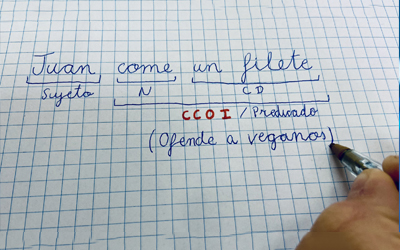 Juan come un filete
Sujeto N CD
CCOI / Predicado
(Ofende a veganos)